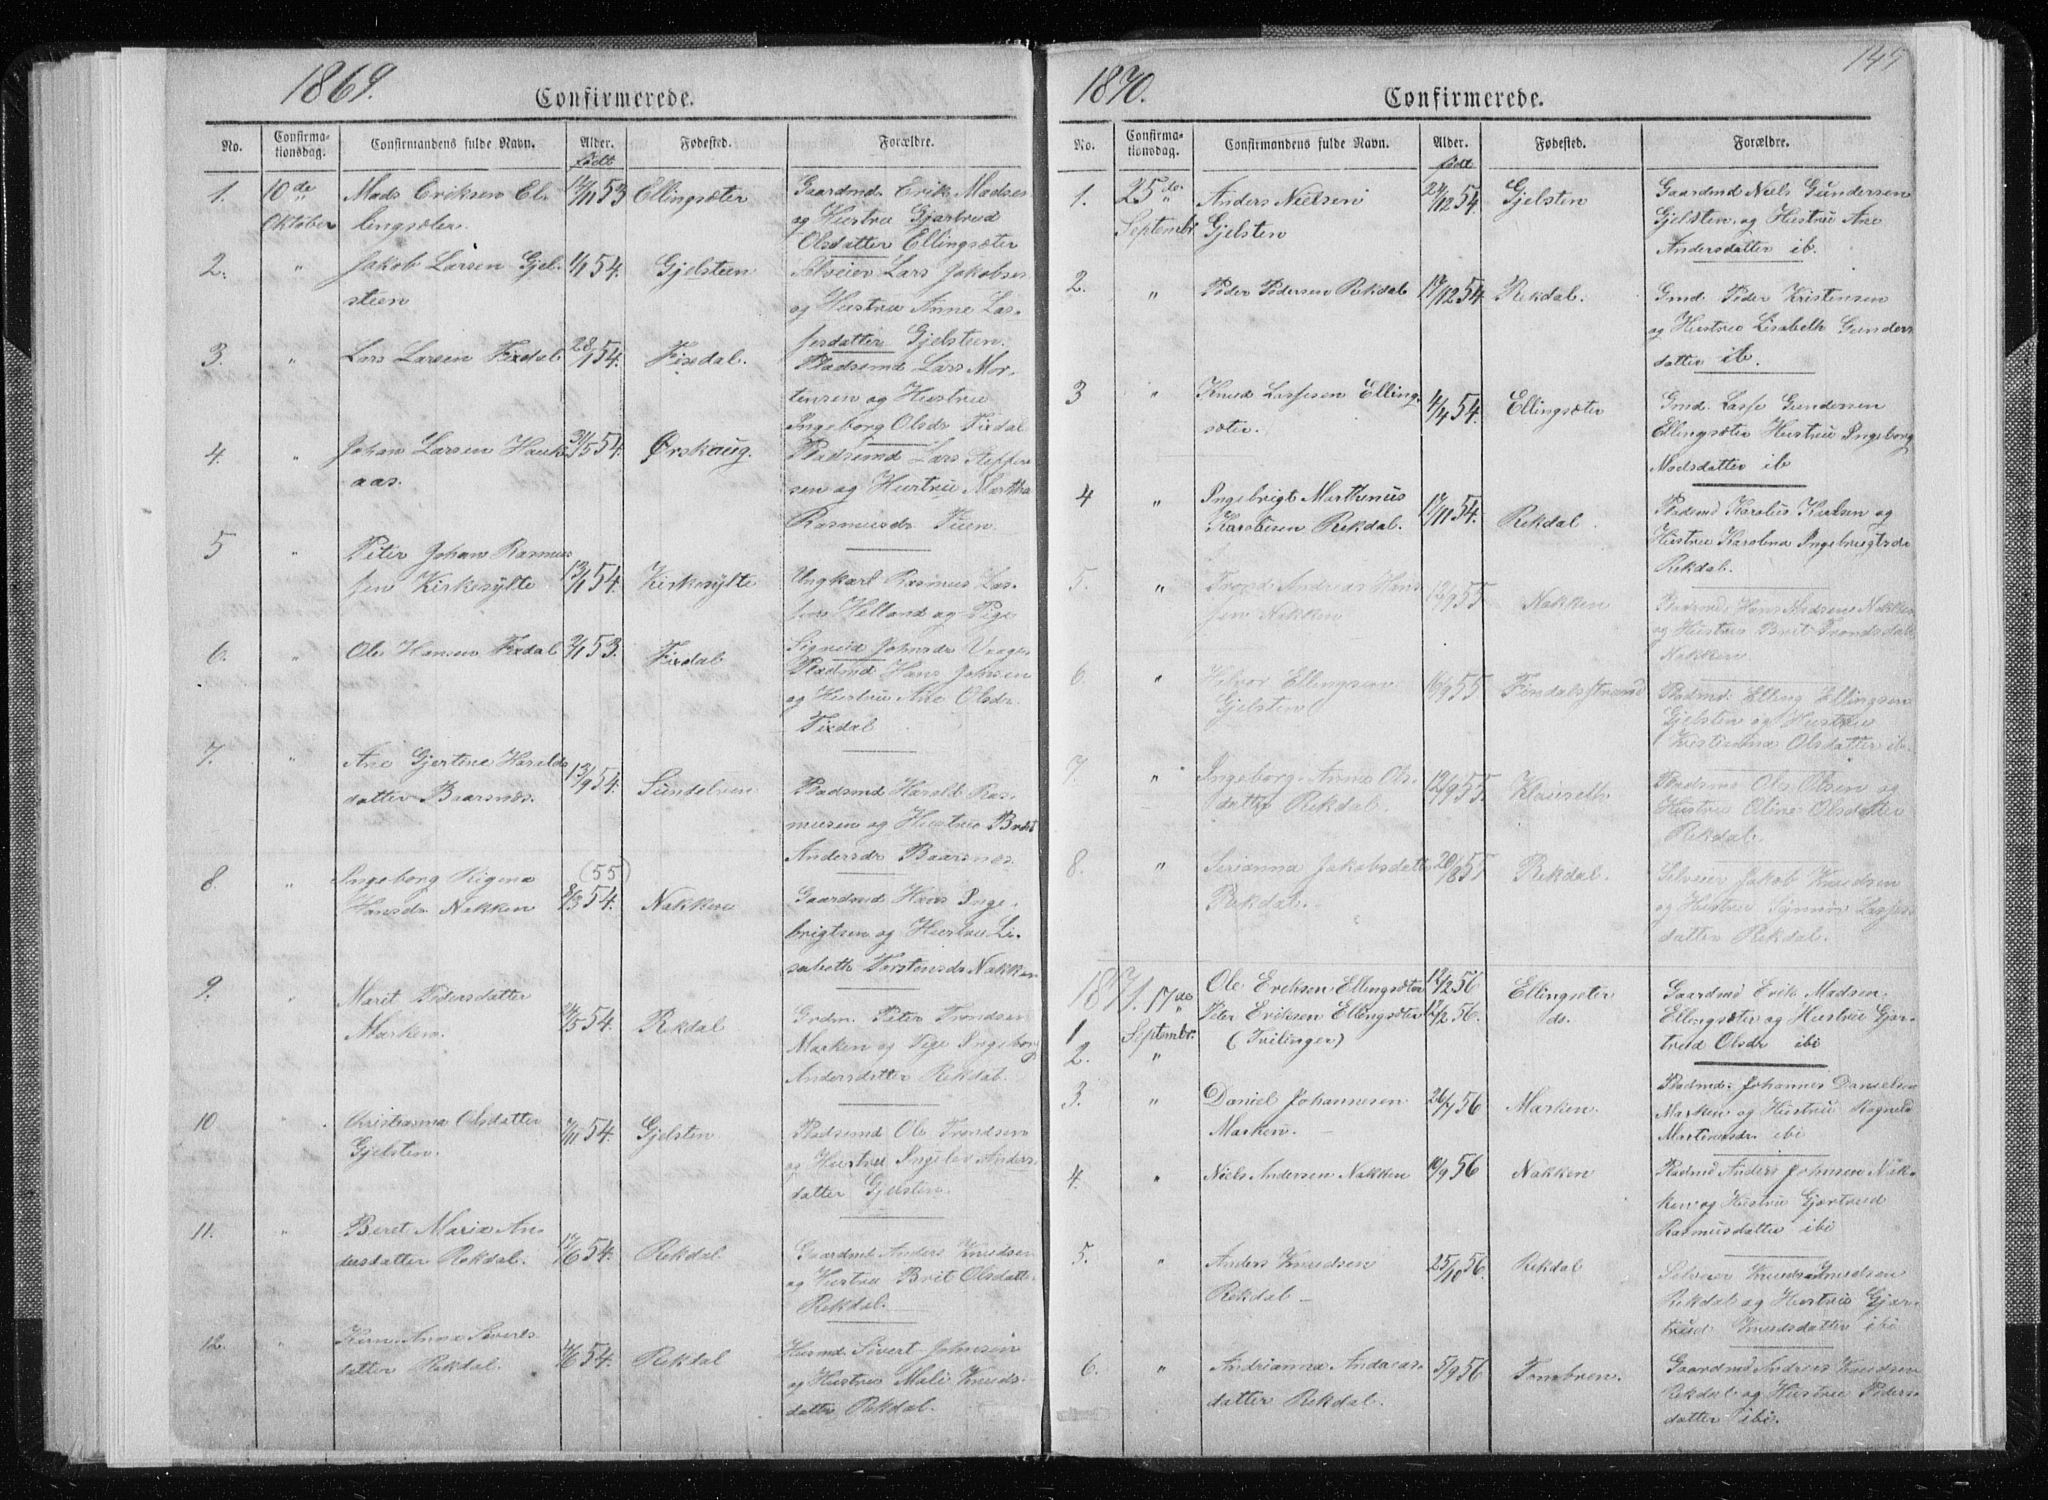 1869.
Confirmerede.
No.
Confirma-
tionsdag.
Confirmandens fulde Navn.
Alder.
født
Fødested.
Forældre.
1.
10de
Oktober
Mads Eriksen El-
lingsæter
53
Ellingsæter
Gaardmd. Erik Madsen
og Hustru Gjertrud
Olsdatter Ellingsæter
2.
"
Jakob Larsen Gjel-
steen
1/1 54.
Gjelsteen
Selveier Lars Jakobsen
og Hustru Anne Las-
sesdatter Gjelsteen.
3.
"
Lars Larsen Fixdal
28/1 54.
Fixdal.
Pladsemd Lars Mor-
tensen og Hustru
Ingeborg Olsdr Fixdal
4.
"
Johan Larsen Hauk-
aas.
31/5 54.
Ørskaug.
Pladsemd Lars Steffen-
sen og Hustru Martha
Rasmusdr
5
"
Peter Johan Rasmus-
sen Kirkesylte
13/1 54.
Kirkesylte
Ungkarl Rasmus Las-
sen Helland og Pige
Johnsdr
6.
"
Ole Hansen Fixdal
53.
Fixdal
Pladsmd Hans Johnsen
og Hustru Ane Olsdr
Fixdal
7.
"
Ane Gjertine Haralds-
datter Baarsnes.
13/9 54.
Pladsmd Harald Ras-
musen og Hustru
Andersdr Baarsnes
8.
"
Ingeborg
Hansdr Nakken
(55)
54.
Nakken
Gaardmd Hans Inge-
brigtsen og Hustru Li-
sabeth Torstensdr Nakken
9.
"
Marit Pedersdatter
Marken.
54.
Rekdal
Grdm. Peter Trondsen
Marken og Pige Ingeborg
Andersdatter Rekdal.
10
"
Christianna Olsdatter
Gjelsten.
54.
Gjelsten
Pladsemd Ole Trondsen
og Hustru Anders-
datter Gjelsten.
11.
"
Beret Maria An-
dersdatter Rekdal.
17/6 54.
Rekdal
Gaardmd Anders Knudsen
og Hustru Brit Olsdatter
Rekdal.
12.
"
Anna Siverts-
datter Rekdal.
54.
Rekdal
Huusmd Sivert Johnsen
og Hustru Mali Knuds-
datter Rekdal.
1870.
Confirmerede.
No.
Confirma-
tionsdag.
Confirmandens fulde Navn.
Alder.
født
Fødested.
Forældre.
1.
25de
Septembr.
Anders Nielsen
Gjelsten
54.
Gjelsten
Gaardmd Niels Gundersen
Gjelsten og Hustru Ane
Andersdatter ib.
2.
"
Peder Pedersen Rekdal
17/12 54.
Rekdal.
Gmd. Peder Kristensen
og Hustru Lisabeth Gunders-
datter ib.
3
"
Knud Lassesen Elling-
sæter.
4/4 54.
Ellingsæter
Gmd. Lasse Gundersen
Ellingsæter Hustru Ingeborg
Madsdatter ib
4
"
Ingebrigt Marthinus
Karolusen Rekdal.
17/11 54.
Rekdal
Pladsmd Karolus Karlsen og
Hustru Karolina Ingebrigtsdr
Rekdal.
5.
"
Trond Andreas Hans-
sen Nakken
12/9 55
Nakken
Pladsmd Hans Nakken
og Hustru Brit Trondsdatter
Nakken
6.
"
Ellingsen
Gjelsten
55
Pladsmd. Elling Ellingsen
Gjelsten og Hustru
Kristianna Olsdatter ib.
7.
"
Ingeborg Anna Ols-
datter Rekdal.
12/9 55.
Pladsmd Ole Olsen og
Hustru Oline Olsdatter
Rekdal
8.
"
Serianna Jakobsdatter
Rekdal.
20/8 55
Rekdal.
Selveier Jakob Knudsen
og Hustru Synnøv Lasses-
datter Rekdal.
1871.
17de
Septembr.
1
2.
"
Ole Eriksen Ellingsæter
Peter Eriksen Ellingsæter
(Tvilinger)
12/2 56
12/2 56.
Ellingseter
ds.
Gaardmd Erik Madsen
Ellingsæter og Hustru Gjer-
trud Olsdr ibi
3.
"
Daniel Johannesen
Marken.
26/7 56
Marken.
Pladsmd. Johannes Danielsen
Marken og Hustru Ragnild
Martinusdr. ibi
4.
"
Niels Andersen Nakken
10/9 56
Nakken
Pladsmd Anders Johnsen Nak-
ken og Hustru Gjertrud
Rasmusdatter ibi
5.
"
Anders Knudsen
Rekdal
25/10 56.
Rekdal
Selveier Knud Knudsen
Rekdal og Hustru Gjer-
trud Knudsdatter ibi
6.
"
Andrianna Andreas-
datter Rekdal.
5/9 56
Tombren.
Gaardmd Andreas Knudsen
Rekdal og Hustru Peders-
datter ibi.